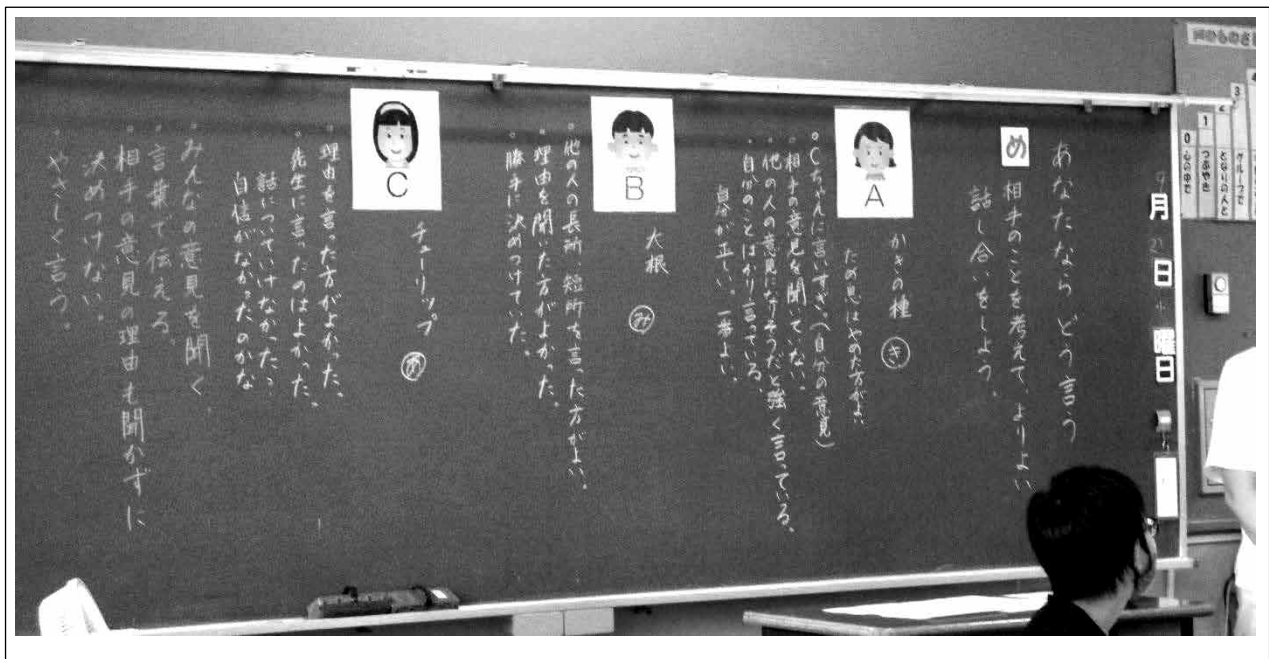 あなたなら どう言う
め
相手のことを考えて、よりよい
話し合いをしよう。
A
かきの種
き
ため息はやめた方がよい
Cちゃんに言いすぎ。(自分の意見)
相手の意見を聞いていない。
他の人の意見になりそうだと強く言っている、
自分のことばかり言っている、
自分が正しい。一番よい。
B
大根
み
他の人の長所、短所を言った方がよい。
理由を聞いた方がよかった。
勝手に決めつけていた。
C
チューリップ
あ
理由を言った方がよかった、
先生に言ったのはよかった。
話についていけなかった、
自信がなかったのかな
みんなの意見を聞く。
言葉で伝える。
相手の意見の理由も聞かずに
決めつけない。
やさしく言う。
9
月
日
曜日
声のものさし
0
心の中で
1
つぶやき
2
となりの人と
3
グループで
4